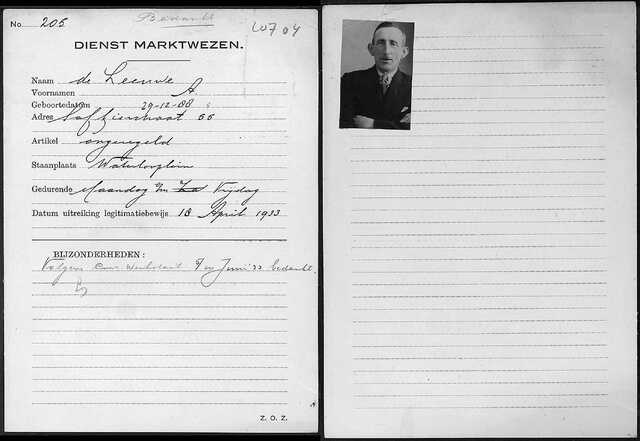 Bedankt
No. 205
LO7 04
DIENST MARKTWEZEN.
Naam de Leeuwe
Voornamen A.
Geboortedatum 29-12-88
Adres 56
Artikel ongeregeld
Staanplaats Waterlooplein
Gedurende Maandag t/m Vrijdag
Datum uitreiking legitimatiebewijs 18 April 1933
BIJZONDERHEDEN:
Volgens Juni 33 bedankt.
Z. O. Z.